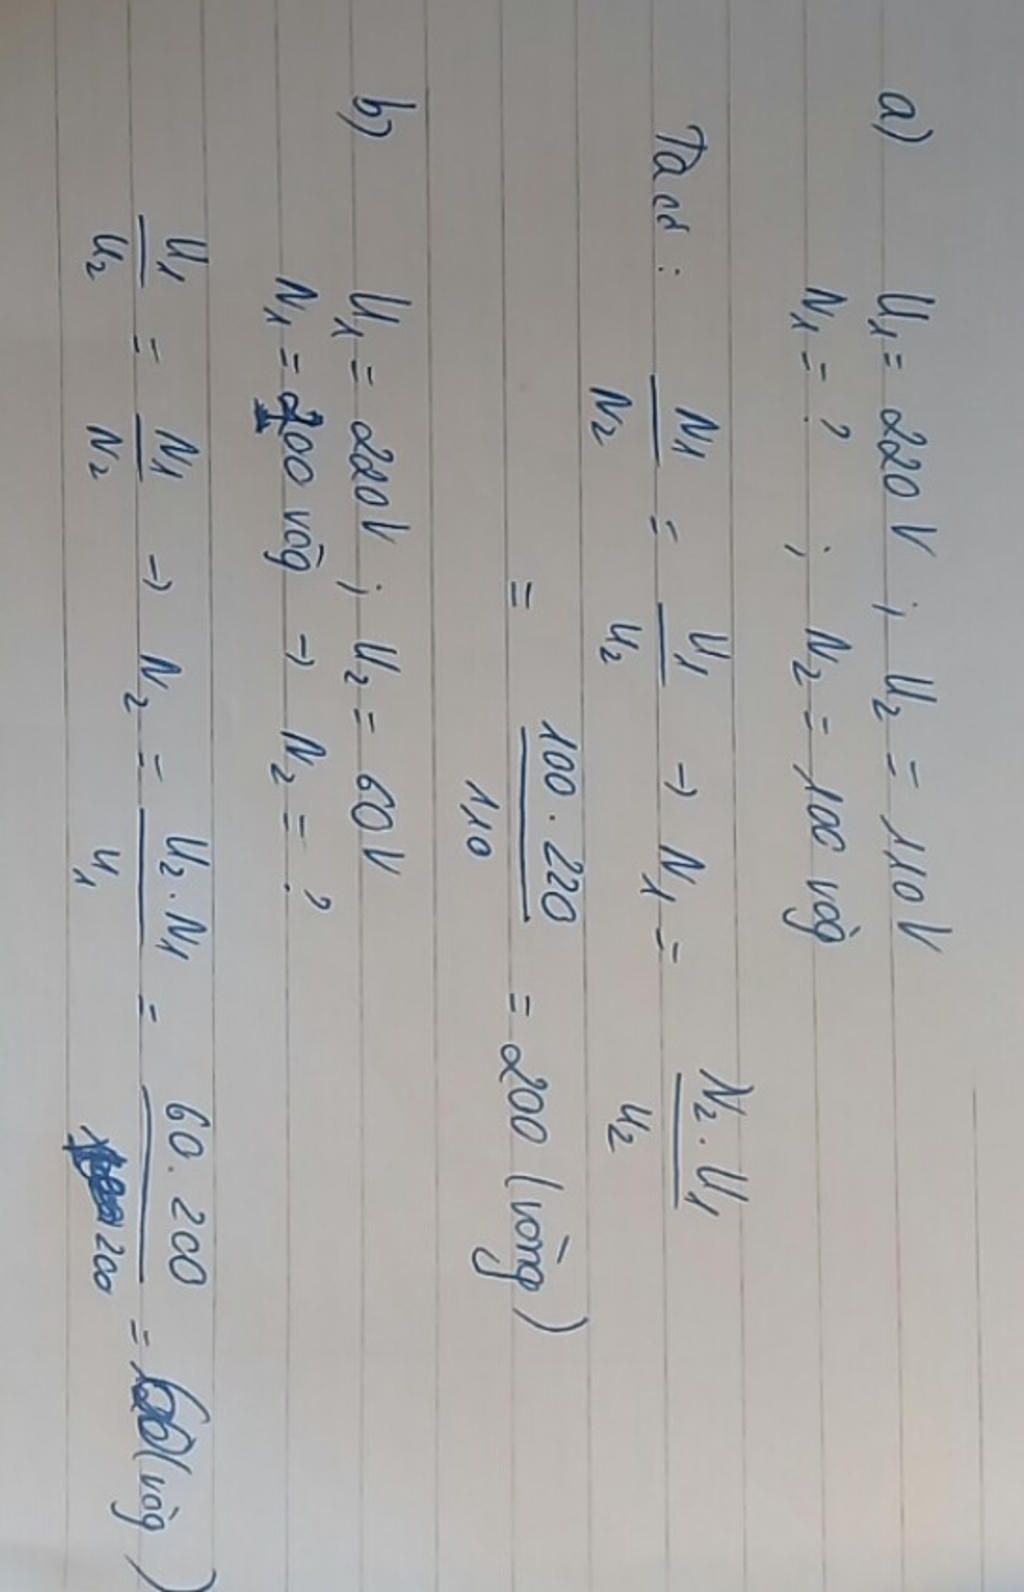 a) U1 = 220V ; U2 = 110V
N1 = ? ; N2 = 100 vòg
Ta có : N1/N2 = U1/U2 → N1 = N2 . U1/U2
= 100 . 220/110 = 200 (vòng)
b) U1 = 220V ; U2 = 60V
N1 = 200 vòg → N2 = ?
U1/U2 = N1/N2 → N2 = U2 . N1/U1 = 60 . 200/200 = (vòg)